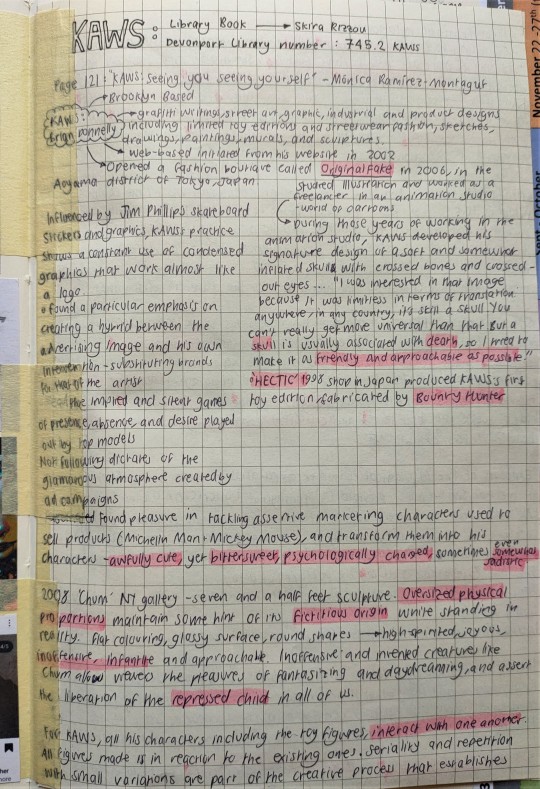 KAWS: Library Book → Skira Rizzou
Devonport Library number : 745.2 KAWS
Page 121: "KAWS: seeing you seeing yourself" - Mónica Ramírez-Montagut
Brooklyn Based
KAWS:
Brian Donnelly
graffiti writings, street art, graphic, industrial and product designs
including limited toy editions and streetwear fashion, sketches,
drawings, paintings, murals, and sculptures.
web-based initiated from his website in 2002
Opened a fashion boutique called Original Fake in 2006, in the
Aoyama district of Tokyo, Japan
Studied Illustration and worked as a
freelancer in an animation studio
- world of cartoons
During those years of working in the
animation studio, KAWS developed his
signature design of a soft and somewhat
inflated skull with crossed bones and crossed-
out eyes... "I was interested in that image
because it was limitless in terms of translation
anywhere, in any country, its still a skull You
can't really get more universal than that But a
skull is usually associated with death, so I tried to
make it as friendly and approachable as possible"
'HECTIC' 1998 shop in Japan produced KAWS's first
toy edition, fabricated by Bounty Hunter
Influenced by Jim Phillip's skateboard
stickers and graphics, KAWS' practice
shows a constant use of condensed
graphics that work almost like
a logo
found a particular emphasis on
creating a hybrid between the
advertising image and his own
intervention - substituting brands
for that of the artist
the implied and silent games
of presence, absence, and desire played
out by top models
Not following dictates of the
glamorous atmosphere created by
ad campaigns
Found pleasure in tackling assertive marketing characters used to
sell products (Michelin Man + Mickey Mouse), and transform them into his
characters - awfully cute, yet bittersweet, psychologically charged, sometimes even somewhat
sadistic
2008 'Chum' NY gallery - seven and a half feet sculpture. Oversized physical
proportions maintain some hint of its fictitious origin while standing in
reality. flat colouring, glossy surface, round shapes → high-spirited, joyous,
inoffensive, infantile and approachable. Inoffensive and invented creatures like
Chum allow viewers the pleasures of fantasizing and daydreaming, and assert
the liberation of the repressed child in all of us.
For KAWS, all his characters including the toy figures, interact with one another.
All figures made is in reaction to the existing ones. seriality and repetition
with small variations are part of the creative process that establishes
November 22 - 27th